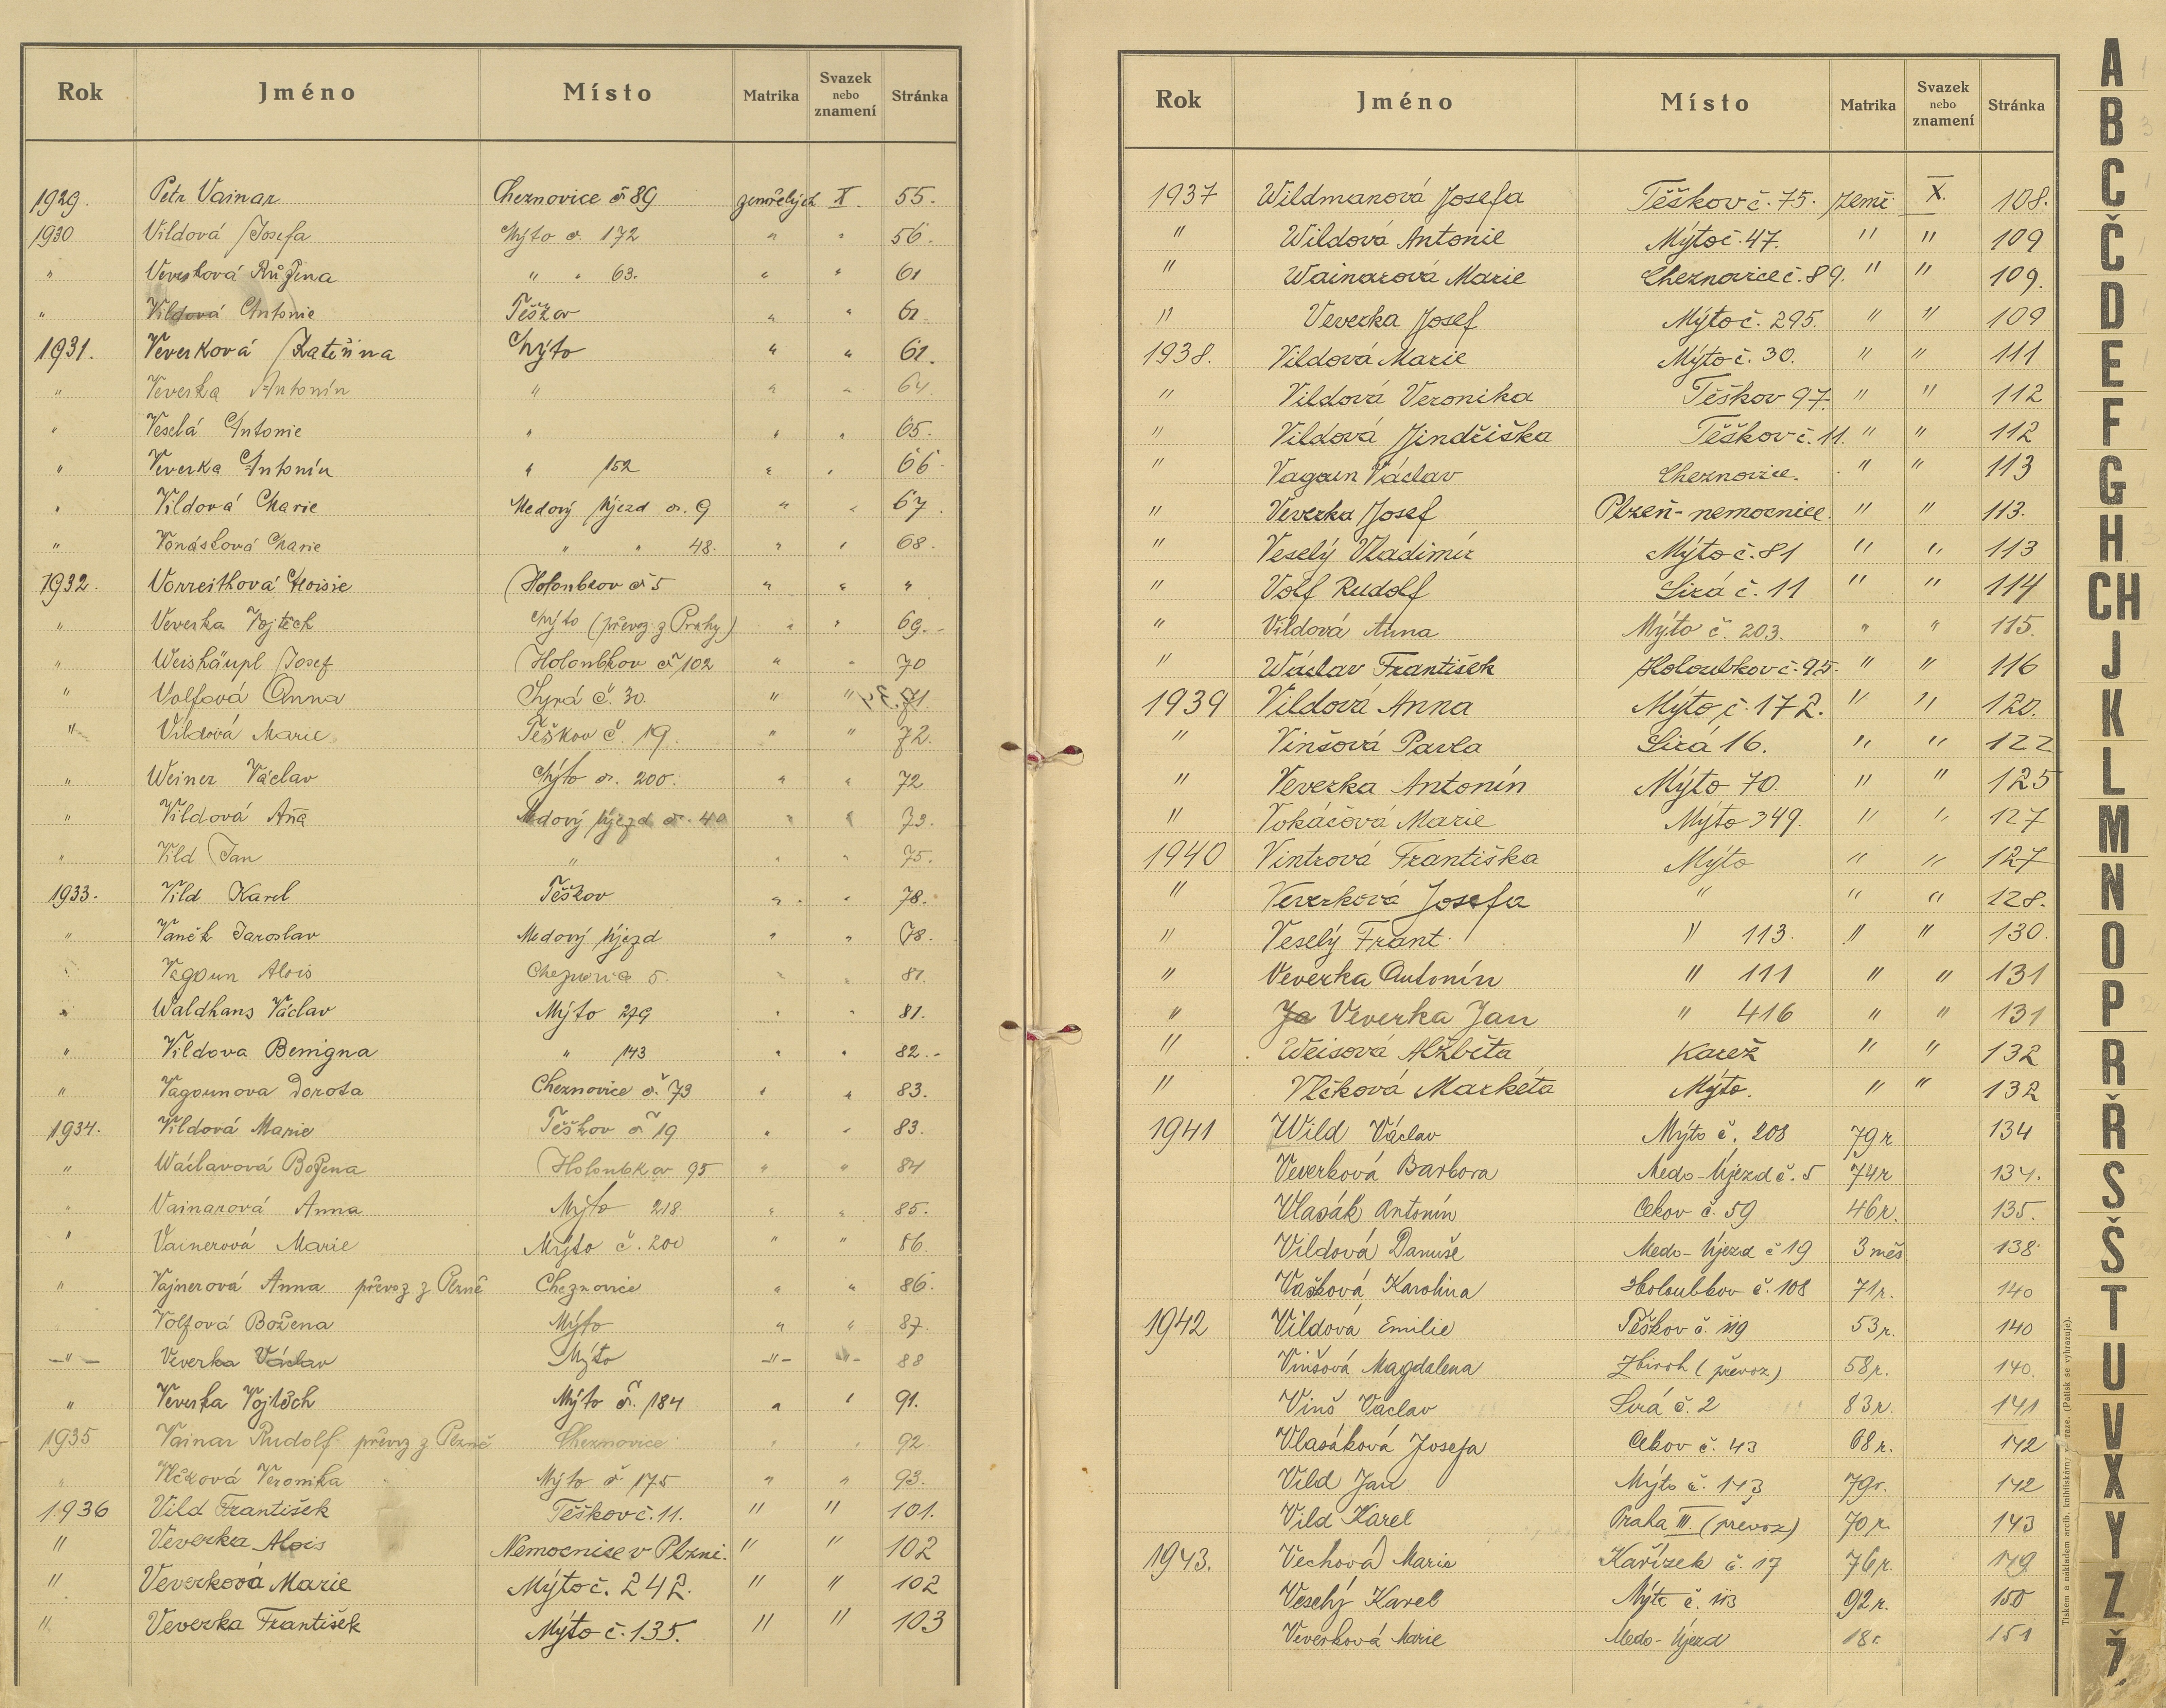 Rok Jméno Místo Matrika Svazek nebo znamení Stránka
1929. Petr Vainar Cheznovice č 89 zemřelých X. 55.
1930 Vildová Josefa Mýto č. 172 " " 56.
" Veverková Růžena " " 63. " " 61
" Vildová Antonie Těškov " " 61
1931. Veverková Kateřina Mýto " " 61.
" Veverka Antonín " " " 64.
" Veselá Antonie " " " 65.
" Veverka Antonín " 152 " " 66.
" Vildová Marie Medový Újezd č. 9 " " 67.
" Vonásková Marie " " 48. " " 68.
1932. Aloisie Holoubkov č 5 " " "
" Veverka Vojtěch Mýto (převoz z Prahy) " " 69.
" Weishäupl Josef Holoubkov č 102 " " 70
" Volfová Anna Syrá č. 30. " " 71
" Vildová Marie Těškov č. 19. " " 72.
" Weiner Václav Mýto č. 200. " " 72
" Vildová Aña Medový Újezd č. 40 " " 73.
" Vild Jan " " " 75.
1933. Vild Karel Těškov " " 78.
" Vaněk Jaroslav Medový Újezd " " 78.
" Vagoun Alois 5. " " 81.
" Waldhans Václav Mýto 279 " " 81.
" Vildova Benigna " 143 " " 82.
" Vagounova Dorota Cheznovice č. 73 " " 83.
1934. Vildová Marie Těškov č 19 " " 83.
" Wáclavová Božena Holoubkov 95 " " 84
" Vainarová Anna Mýto 218 " " 85.
" Vainerová Marie Mýto č. 200 " " 86.
" Vajnerová Anna převoz z Plzně Cheznovice " " 86.
Volfová Božena Mýto " " 87.
—"— Veverka Václav Mýto —"— —"— 88
" Veverka Vojtěch Mýto č. 184 " " 91.
1935 Vainar Rudolf převoz z Plzně Cheznovice " " 92
" Vlčková Veronika Mýto č 175 " " 93.
1936 Vild František Těškov č. 11. " " 101.
" Veverka Alois Nemocnice v Plzni. " " 102
" Veverková Marie Mýto č. 242. " " 102
" Veverka František Mýto č. 135. " " 103
Rok Jméno Místo Matrika Svazek nebo znamení Stránka
1937 Wildmanová Josefa Těškov č. 75. zemř. X. 108.
" Wildová Antonie Mýto č. 47. " " 109
" Wainarová Marie Cheznovice č. 89. " " 109.
" Veverka Josef Mýto č. 295. " " 109
1938. Vildová Marie Mýto č. 30. " " 111
" Vildová Veronika Těškov 97. " " 112
" Vildová Jindřiška Těškov č. 11. " " 112
" Vagoun Václav Cheznovice. " " 113
" Veverka Josef Plzeň - nemocnice. " " 113.
" Veselý Vladimír Mýto č. 81 " " 113
" Volf Rudolf Sirá č. 11 " " 114
" Vildová Anna Mýto č. 203. " " 115.
" Wáclav František Holoubkov č. 95. " " 116
1939 Vildová Anna Mýto č. 172. " " 120.
" Vinšová Pavla Sirá 16. " " 122
" Veverka Antonín Mýto 70. " " 125
" Vokáčová Marie Mýto 349. " " 127
1940 Vintrová Františka Mýto " " 127
" Veverková Josefa " " " 128.
" Veselý Frant. " 113. " " 130.
" Veverka Antonín " 111 " " 131
" Ja Veverka Jan " 416 " " 131
" Weisová Alžběta Karez " " 132
" Vlčková Markéta Mýto. " " 132
1941 Wild Václav Mýto č. 208 79r 134
Veverková Barbora Medo-Újezd č. 5 74r 134.
Vlasák Antonín Cekov č. 59 46r. 135.
Vildová Danuše Medo-Újezd č 19 3 měs. 138
Vašková Karolina Holoubkov č. 108 71r. 140
1942 Vildová Emilie Těškov č. 119 53r. 140
Vinšová Magdalena Zbiroh (převoz) 58r. 140.
Vinš Václav Sirá č. 2 83r. 141
Vlasáková Josefa Cekov č. 43 68r. 142
Vild Jan Mýto č. 143 79r. 142
Vild Karel Praha III. (převoz) 70r. 143
1943. Vechová Marie Kařízek č. 17 76r. 149
Veselý Karel Mýto č. 113 92r. 150
Veverková Marie Medo-Újezd 18r 151
A
B
C
Č
D
E
F
G
H
CH
J
K
L
M
N
O
P
R
Ř
S
Š
T
U
V
X
Y
Z
Ž